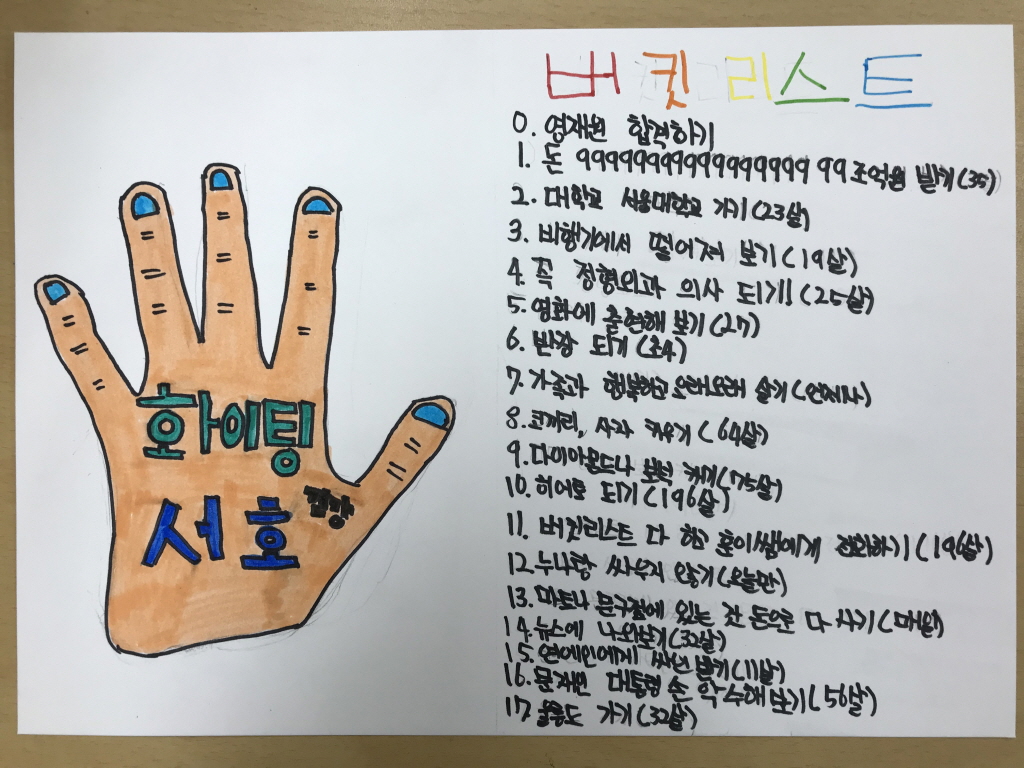 버킷리스트
0. 영재원 합격하기
1. 돈 999999999999999999 99조억원 벌기(35)
2. 대학교 서울대학교 가기(23살)
3. 비행기에서 떨어져 보기(19살)
4. 꼭 정형외과 의사 되기!(25살)
5. 영화에 출현해 보기(27)
6. 반장 되기(초4)
7. 가족과 행복하고 오래오래 살기(언제나)
8. 코끼리, 사자 키우기(64살)
9. 다이아몬드나 보석 캐기(75살)
10. 히어로 되기(196살)
11. 버킷리스트 다 하고 훈이쌤에게 전화하기(196살)
12. 누나랑 싸우지 않기(오늘만)
13. 마트나 문구점에 있는 것 돈으로 다 사기(매월)
14. 뉴스에 나와보기(32살)
15. 연예인에게 싸인 받기(11살)
16. 문재인 대통령 손 악수해 보기(56살)
17. 울릉도 가기(32살)
화이팅
서호